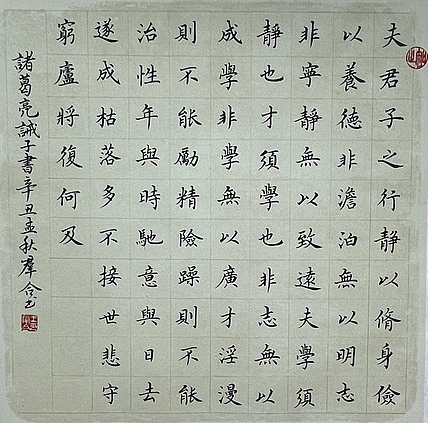 夫君子之行靜以脩身儉
以養德非澹泊無以明志
非寧靜無以致遠夫學須
靜也才須學也非志無以
成學非學無以廣才淫漫
則不能勵精險躁則不能
治性年與時馳意與日去
遂成枯落多不接世悲守
窮廬將復何及
諸葛亮誡子書辛丑孟秋羣合书